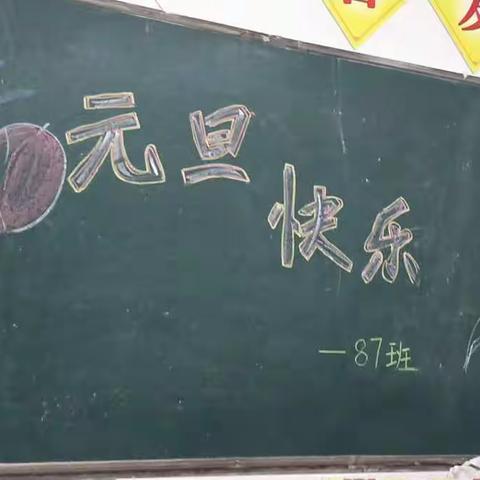 元旦
快乐
—87班